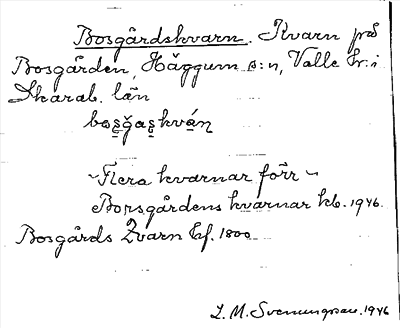 Bosgårdskvarn. Kvarn på
Bosgården, Häggum s:n, Valle hr: i
Skarab. län
bosğas̱kvá̱n
~ Flera kvarnar förr ~
Borsgårdens kvarnar kb. 1946.
Bosgårds Qvarn Hf. 1800
L. M. Svenungsson. 1946